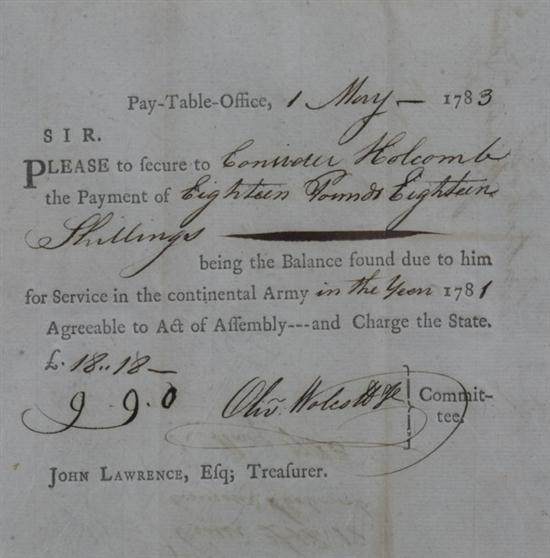 Pay-Table-Office, 1 May — 1783
SIR.
PLEASE to ſecure to Conider Holcomb
the Payment of Eighteen Pounds Eighteen
Shillings
being the Balance found due to him
for Service in the continental Army in the Year 1781
Agreeable to Act of Aſſembly---and Charge the State.
£. 18..18—
9.9.0 Olivr. Wolcott Jr } Commit-
tee.
JOHN LAWRENCE, Eſq; Treaſurer.